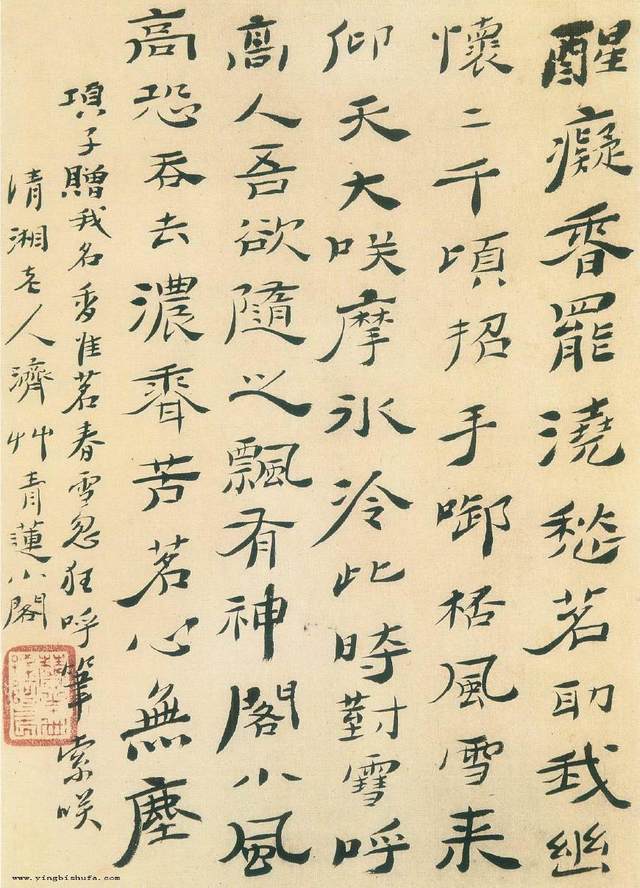 醒癡香罷澆愁茗助我幽
懷二千頃招手啣桮風雪来
仰天大咲摩氷冷此時對雪呼
髙人吾欲隨之飄有神閣小風
高恐吞去濃香苦茗心無塵
項子贈我名香佳茗春雪忽狂呼筆索咲
清湘老人濟艸青蓮小閣
www.yingbishufa.com